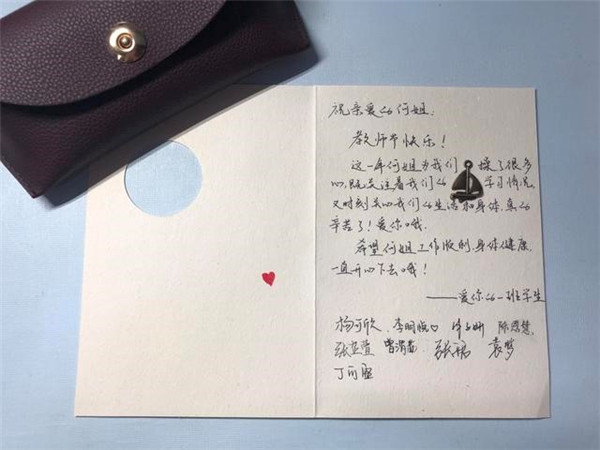 祝亲爱的何姐：
教师节快乐！
这一年何姐为我们操了很多
心，既关注着我们的学习情况，
又时刻关心我们的生活和身体，真的
辛苦了！爱你哦。
希望何姐工作顺利，身体健康
一直开心下去哦！
——爱你的一班学生
杨可欣 李明 陈
张 曾 张 袁梦
丁可